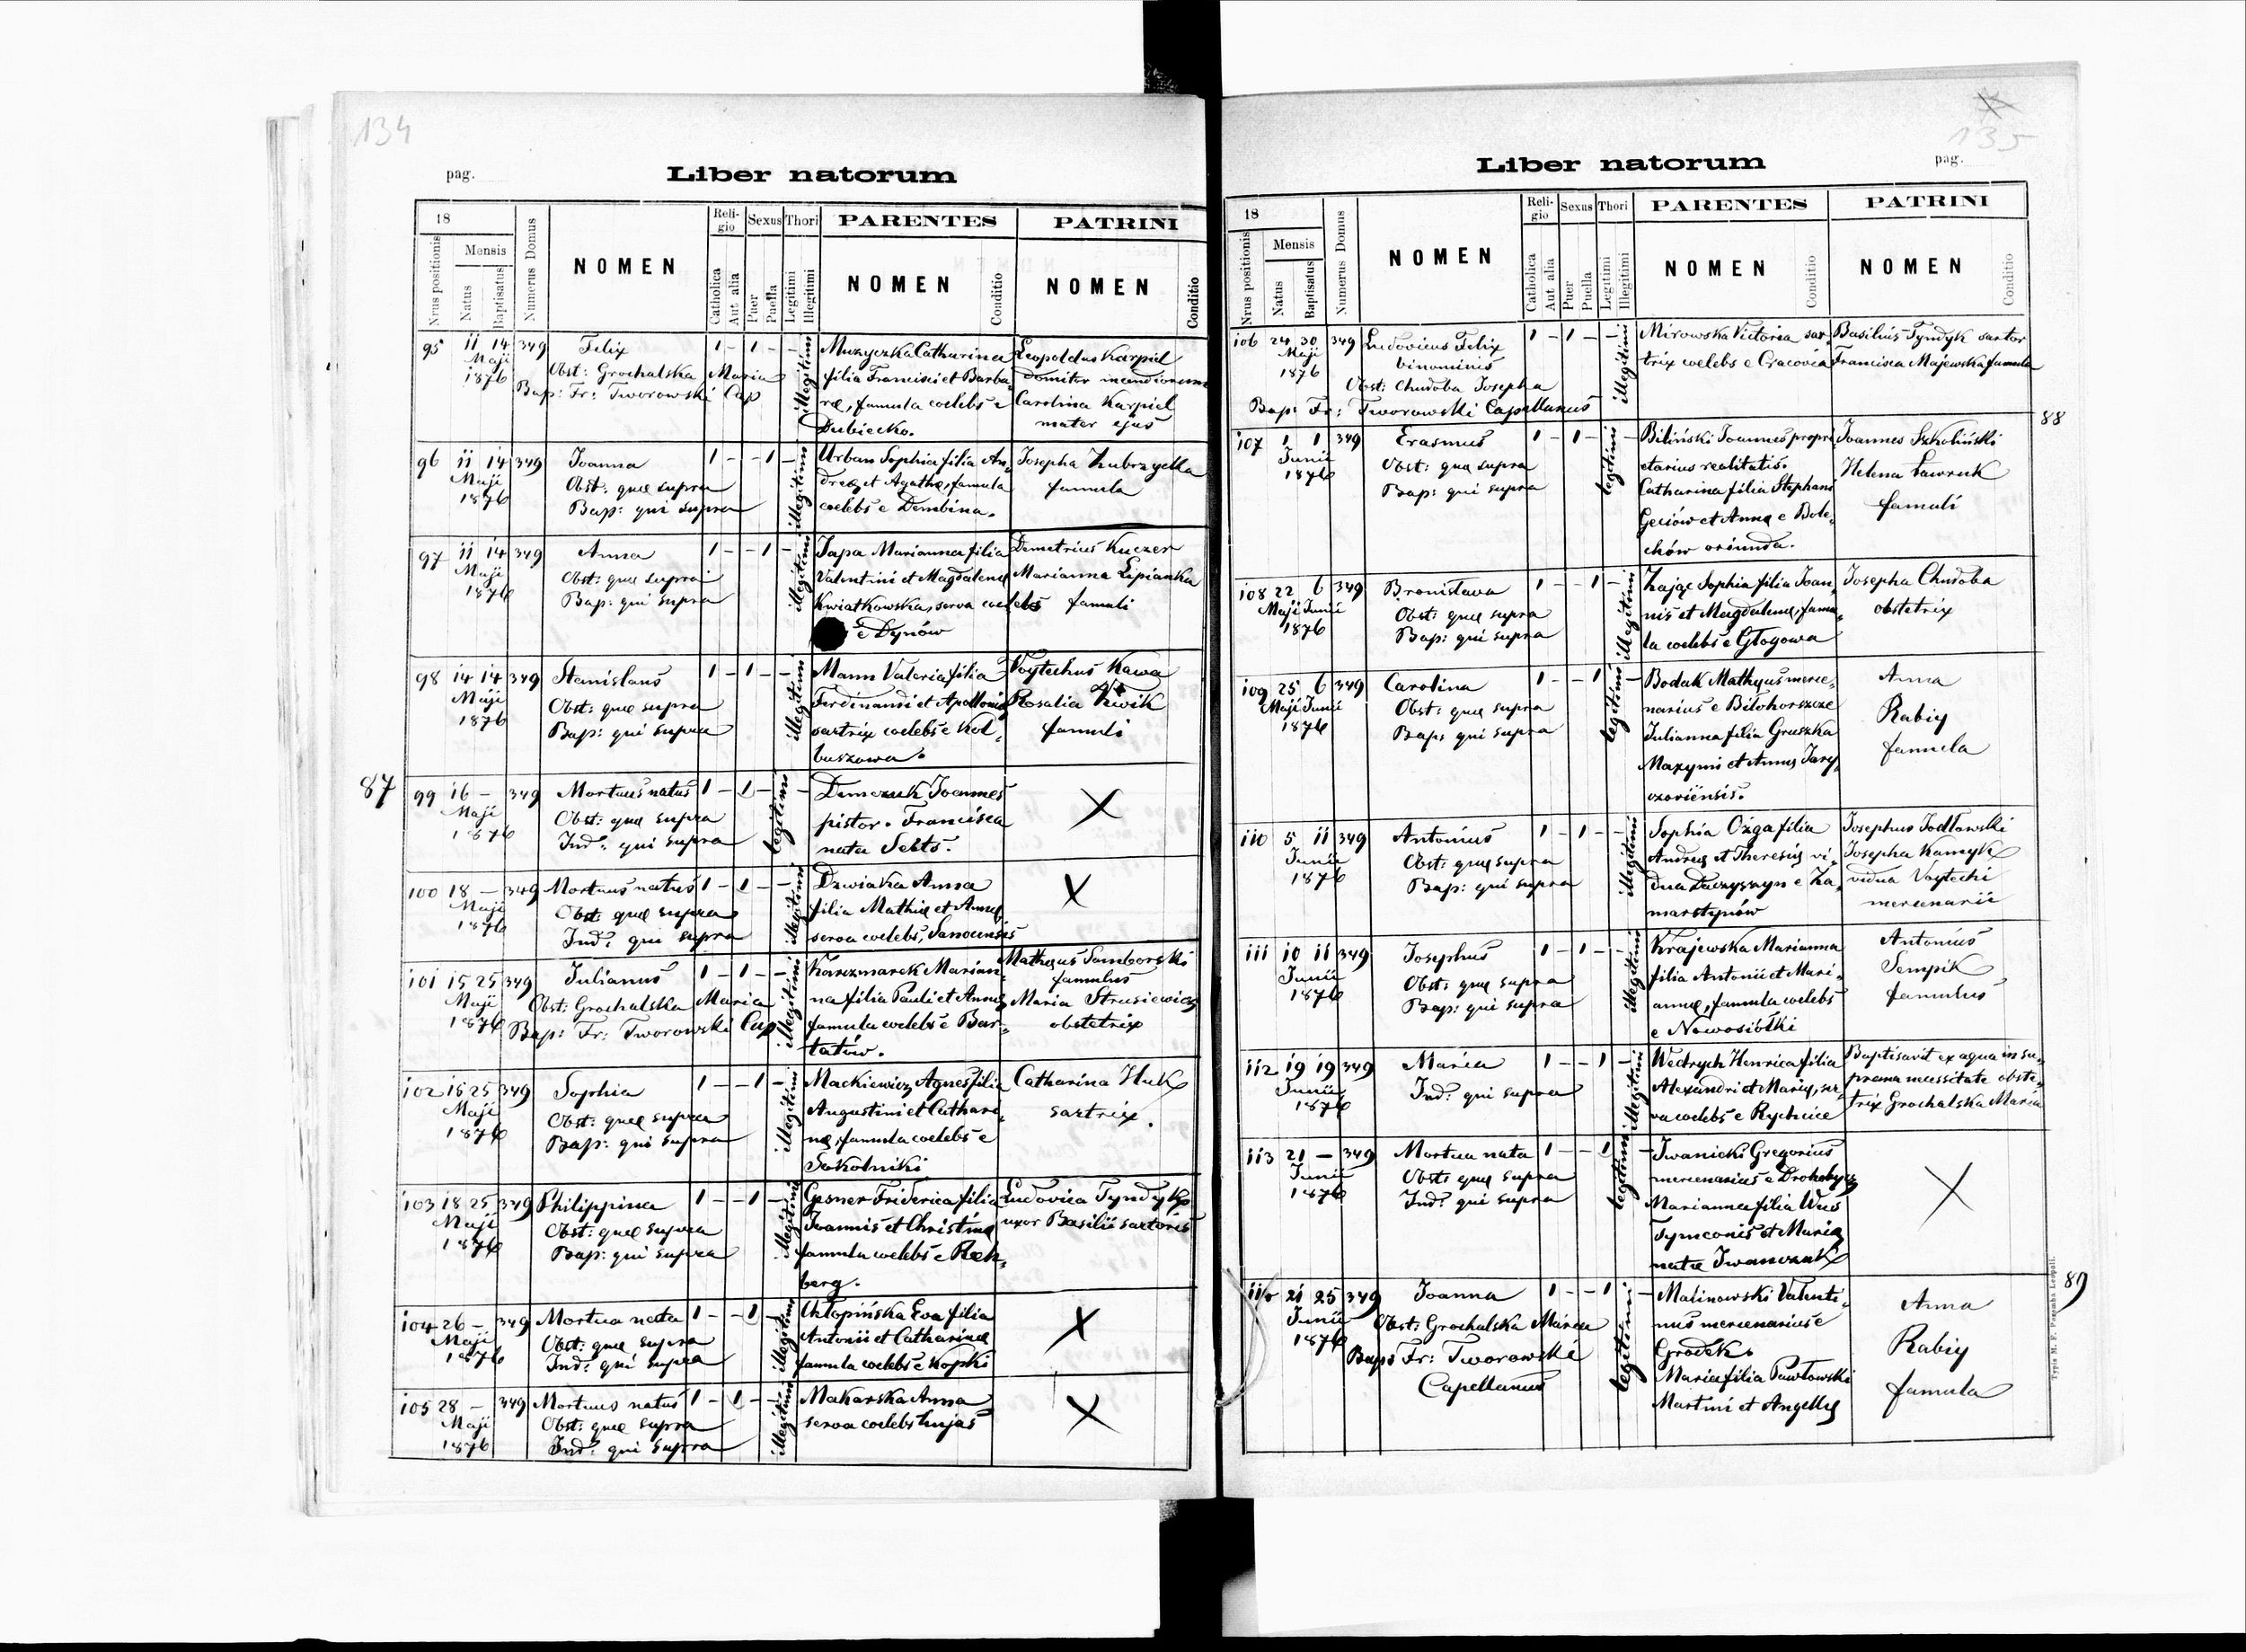 134
pag.
Liber natorum
18
Mensis
Nrus positionis
Natus
Baptisatus
Numerus Domus
NOMEN
Religio
Catholica
Aut alia
Sexus
Puer
Puella
Thori
Legitimi
Illegitimi
PARENTES
NOMEN
Conditio
PATRINI
NOMEN
Conditio
95 11 14 349
Maji
1876
Felix
Obst: Grochalska Maria
Bap: Fr: Tworowski Cap
1 - 1 - -
illegitimi
Muzyczka Catharina
filia Francisci et Barba-
ræ, famula coelebs e
Dubiecko.
Leopoldus Karpiel
domitor incendiorum
Carolina Karpiel
mater ejus
96 11 14 349
Maji
1876
Joanna
Obst: quæ supra
Bap: qui supra
1 - - 1 -
illegitimi
Urban Sophia filia An-
dreæ et Agathæ, famula
coelebs e Dembina.
Josepha Zubrzycka
famula
97 11 14 349
Maji
1876
Anna
Obst: quæ supra
Bap: qui supra
1 - - 1 -
illegitimi
Japa Marianna filia
Valentini et Magdalenæ
Kwiatkowska, serva coelebs
e Dynów
Demetrius Kuczer
Marianna Lipianka
famuli
98 14 14 349
Maji
1876
Stanislaus
Obst: quæ supra
Bap: qui supra
1 - 1 - -
illegitimi
Mann Valeria filia
Ferdinandi et Apolloniæ
sartrix coelebs e Kol-
buszowa.
Voytechus Kawa
Rosalia Kwik
famuli
87
99 16 - 349
Maji
1876
Mortuus natus
Obst: quæ supra
Ind: qui supra
1 - 1 - -
legitimi
Demczuk Joannes
pistor. Francisca
nata Sebts.
X
100 18 - 349
Maji
1876
Mortuus natus
Obst: quæ supra
Ind: qui supra
1 - 1 - -
illegitimi
Dzwiaka Anna
filia Mathiæ et Annæ
serva coelebs, Sanocensis
X
101 15 25 349
Maji
1876
Julianus
Obst: Grochalska Maria
Bap: Fr: Tworowski Cap
1 - 1 - -
illegitimi
Karczmarek Marian-
na filia Pauli et Annæ
famula coelebs e Bar-
tatów.
Matheus Samborski
famulus
Maria Strusiewicz
obstetrix
102 15 25 349
Maji
1876
Sophia
Obst: quæ supra
Bap: qui supra
1 - - 1 -
illegitimi
Mackiewicz Agnes filia
Augustini et Cathari-
næ, famula coelebs e
Sokolniki
Catharina Huk
sartrix.
103 18 25 349
Maji
1876
Philippina
Obst: quæ supra
Bap: qui supra
1 - - 1 -
illegitimi
Gesner Friderica filia
Joannis et Christinæ
famula coelebs e Reh-
berg.
Ludovica Tyndyk
uxor Basilii sartoris
104 26 - 349
Maji
1876
Mortua nata
Obst: quæ supra
Ind: qui supra
1 - - 1 -
illegitimi
Chłopińska Eva filia
Antonii et Catharinæ
famula coelebs e Kopki
X
105 28 - 349
Maji
1876
Mortuus natus
Obst: quæ supra
Ind: qui supra
1 - 1 - -
illegitimi
Makarska Anna
serva coelebs hujas
X
135
pag.
Liber natorum
18
Mensis
Nrus positionis
Natus
Baptisatus
Numerus Domus
NOMEN
Religio
Catholica
Aut alia
Sexus
Puer
Puella
Thori
Legitimi
Illegitimi
PARENTES
NOMEN
Conditio
PATRINI
NOMEN
Conditio
106 24 30 349
Maji
1876
Ludovicus Felix
binominis
Obst: Chudoba Josepha
Bap: Fr: Tworowski Capellanus
1 - 1 - -
illegitimi
Mirowska Victoria sar-
trix coelebs e Cracovia
Basilius Tyndyk sartor
Francisca Majewska famula
88
107 1 1 349
Junii
1876
Erasmus
Obst: quæ supra
Bap: qui supra
1 - 1 - -
legitimi
Biliński Joannes propri-
etarius realitatis.
Catharina filia Stephani
Geciów et Annæ e Bole-
chów oriunda.
Joannes Szkoliński
Helena Ławruk
famuli
108 22 6 349
Maji Junii
1876
Bronislava
Obst: quæ supra
Bap: qui supra
1 - - 1 -
illegitimi
Zając Sophia filia Joan-
nis et Magdalenæ, famu-
la coelebs e Głogowa
Josepha Chudoba
obstetrix
109 25 6 349
Maji Junii
1876
Carolina
Obst: quæ supra
Bap: qui supra
1 - - 1 -
legitimi
Bodak Matheus merce-
narius e Biłohorszcze
Julianna filia Gruszka
Maxymi et Annæ Jary-
czoviensis.
Anna
Rabiy
famula
110 5 11 349
Junii
1876
Antonius
Obst: quæ supra
Bap: qui supra
1 - 1 - -
illegitimi
Sophia Ożga filia
Andreæ et Theresiæ vi-
dua Daczyszyn e Za-
marstynów
Josephus Jodłowski
Josepha Kamyk
vidua Voytechi
mercenarii
111 10 11 349
Junii
1876
Josephus
Obst: quæ supra
Bap: qui supra
1 - 1 - -
illegitimi
Krajewska Marianna
filia Antonii et Mari-
annæ, famula coelebs
e Nowosiółki
Antonius
Sempik
famulus
112 19 19 349
Junii
1876
Maria
Ind: qui supra
1 - - 1 -
illegitimi
Wedrych Henrica filia
Alexandri et Mariæ, ser-
va coelebs e Rychcice
Baptisavit ex aqua in su-
prema necessitate obste-
trix Grochalska Maria
113 21 - 349
Junii
1876
Mortua nata
Obst: quæ supra
Ind: qui supra
1 - - 1 -
legitimi
Iwanicki Gregorius
mercenarius e Drohobycz
Marianna filia Wus
Tymconis et Mariæ
natæ Iwanczuk
X
114 21 25 349
Junii
1876
Joanna
Obst: Grochalska Maria
Bap: Fr: Tworowski
Capellanus
1 - - 1 -
legitimi
Malinowski Valenti-
nus mercenarius e
Grodek.
Maria filia Pawłowski
Martini et Angellæ
Anna
Rabiy
famula
89
Typis M. F. Poremba Leopoli.